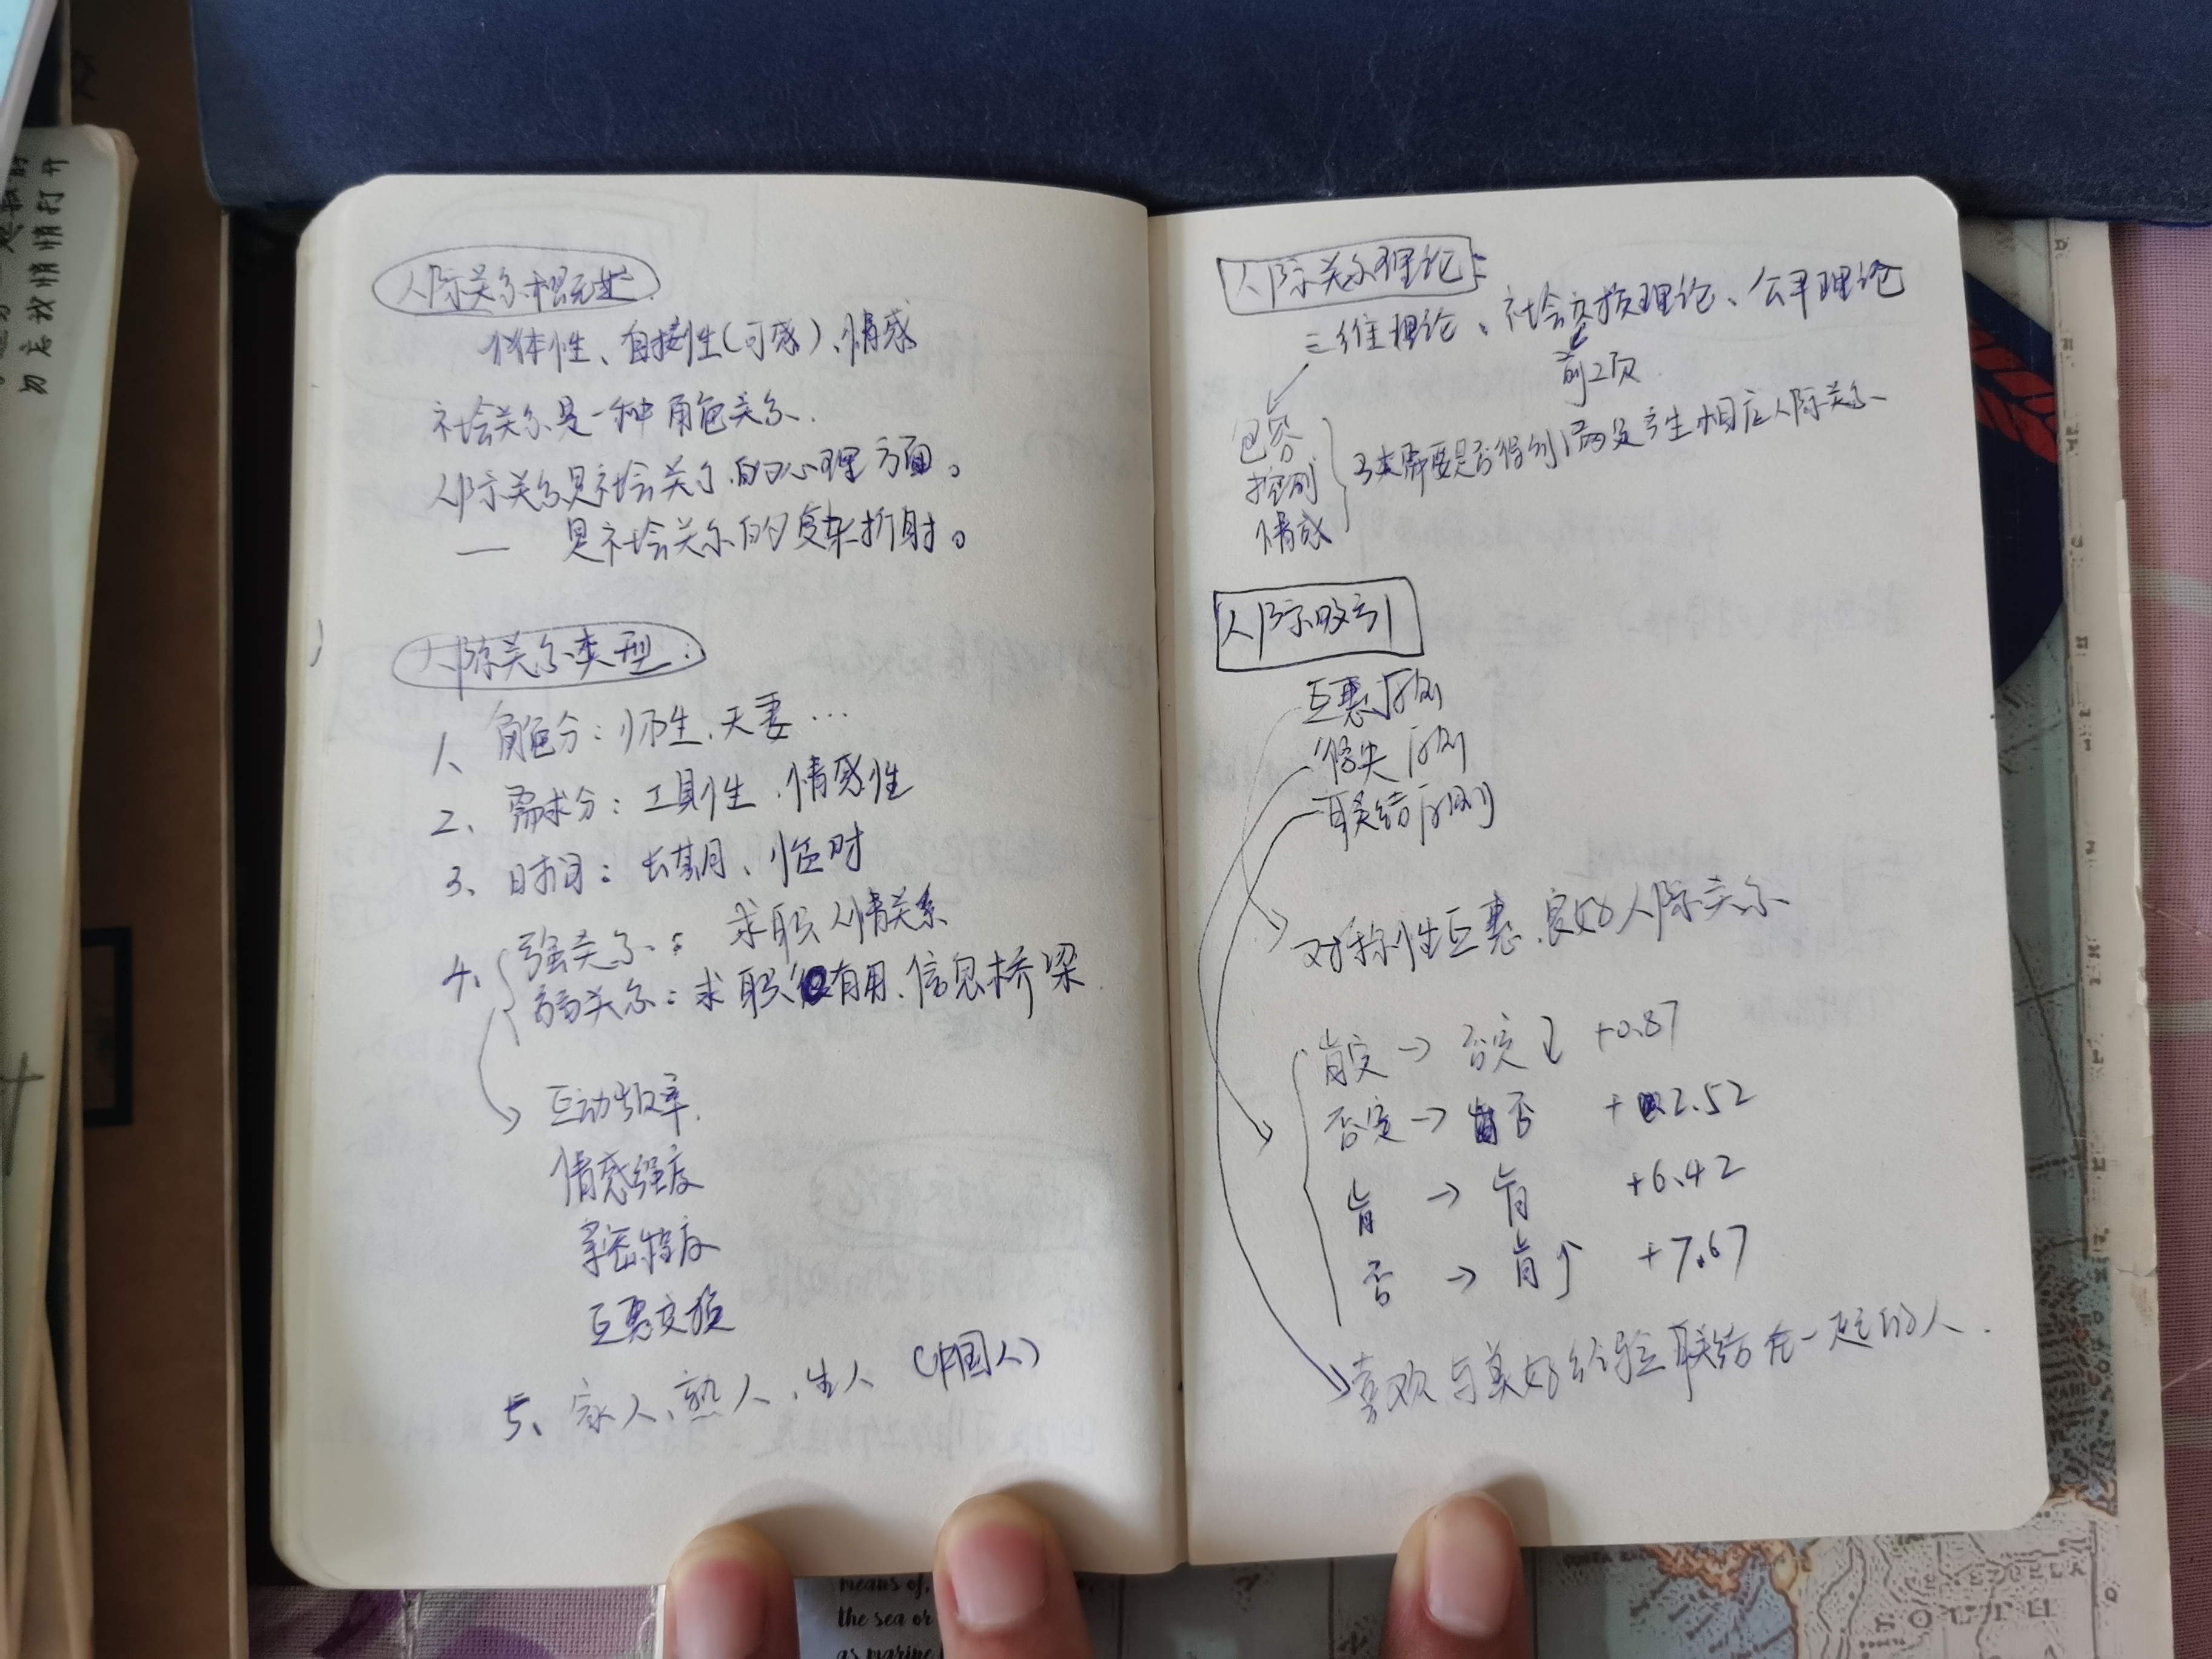 人际关系概述
个体性、直接性(可感)、情感
社会关系是一种角色关系.
人际关系是社会关系的心理方面。
—— 是社会关系的复杂折射。
人际关系类型.
1、角色分：师生、夫妻…
2、需求分：工具性、情感性
3、时间：长期、临时
4、强关系：求职人情关系
弱关系：求职 有用、信息桥梁
互动频率.
情感强度
亲密程度
互惠交换
5、家人、熟人、生人（中国人）
人际关系理论：
三维理论、社会交换理论、公平理论
前2页
包容
控制
情感
3类需要是否得到满足产生相应人际关系
人际吸引
互惠原则
得失原则
联结原则
对称性互惠、良好人际关系
肯定→否定↓ +0.87
否定→否 +2.52
肯→肯 +6.42
否→肯↑ +7.67
喜欢与美好经验联结在一起的人.
勿忘我悄悄打开
means of,
the sea or
as marine
SOUTH